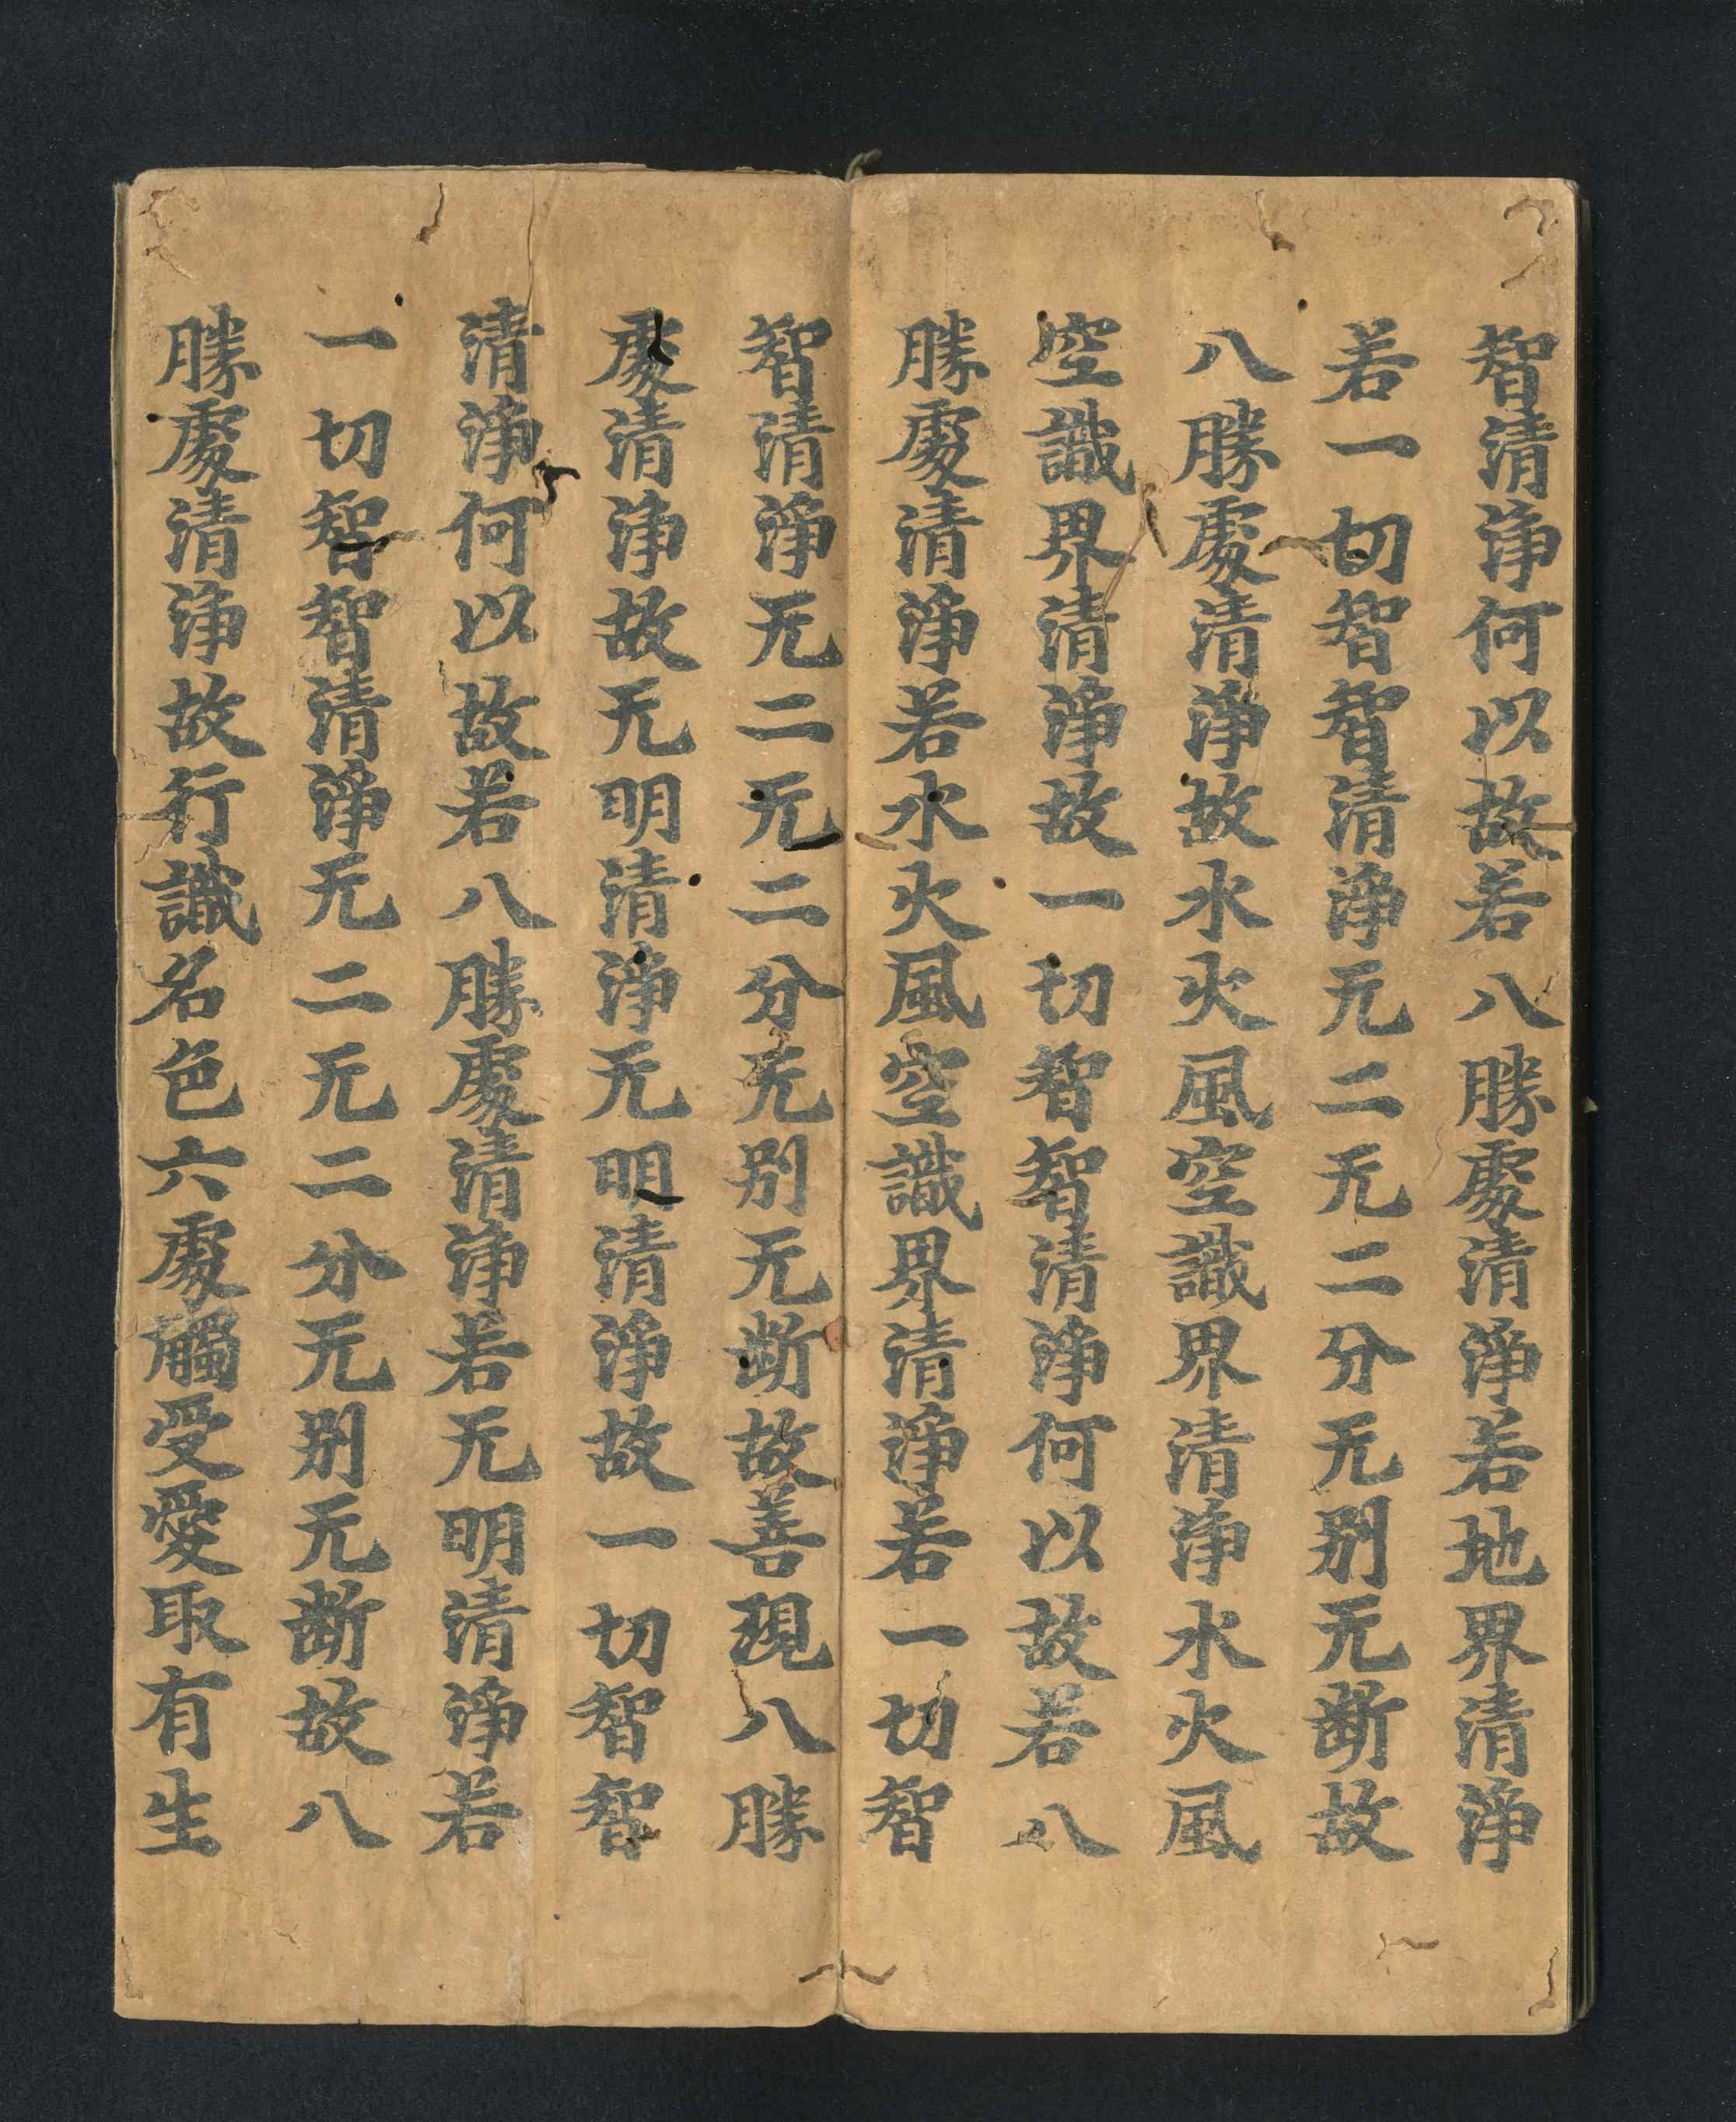 智清淨何以故若八勝處清淨若地界清淨
若一切智智清淨无二无二分无别无断故
八勝處清淨故水火風空識界清淨水火風
空識界清淨故一切智智清淨何以故若八
勝處清淨若水火風空識界清淨若一切智
智清淨无二无二分无别无断故善現八勝
處清淨故无明清淨无明清淨故一切智智
清淨何以故若八勝處清淨若无明清淨若
一切智智清淨无二无二分无别无断故八
勝處清淨故行識名色六處觸受愛取有生